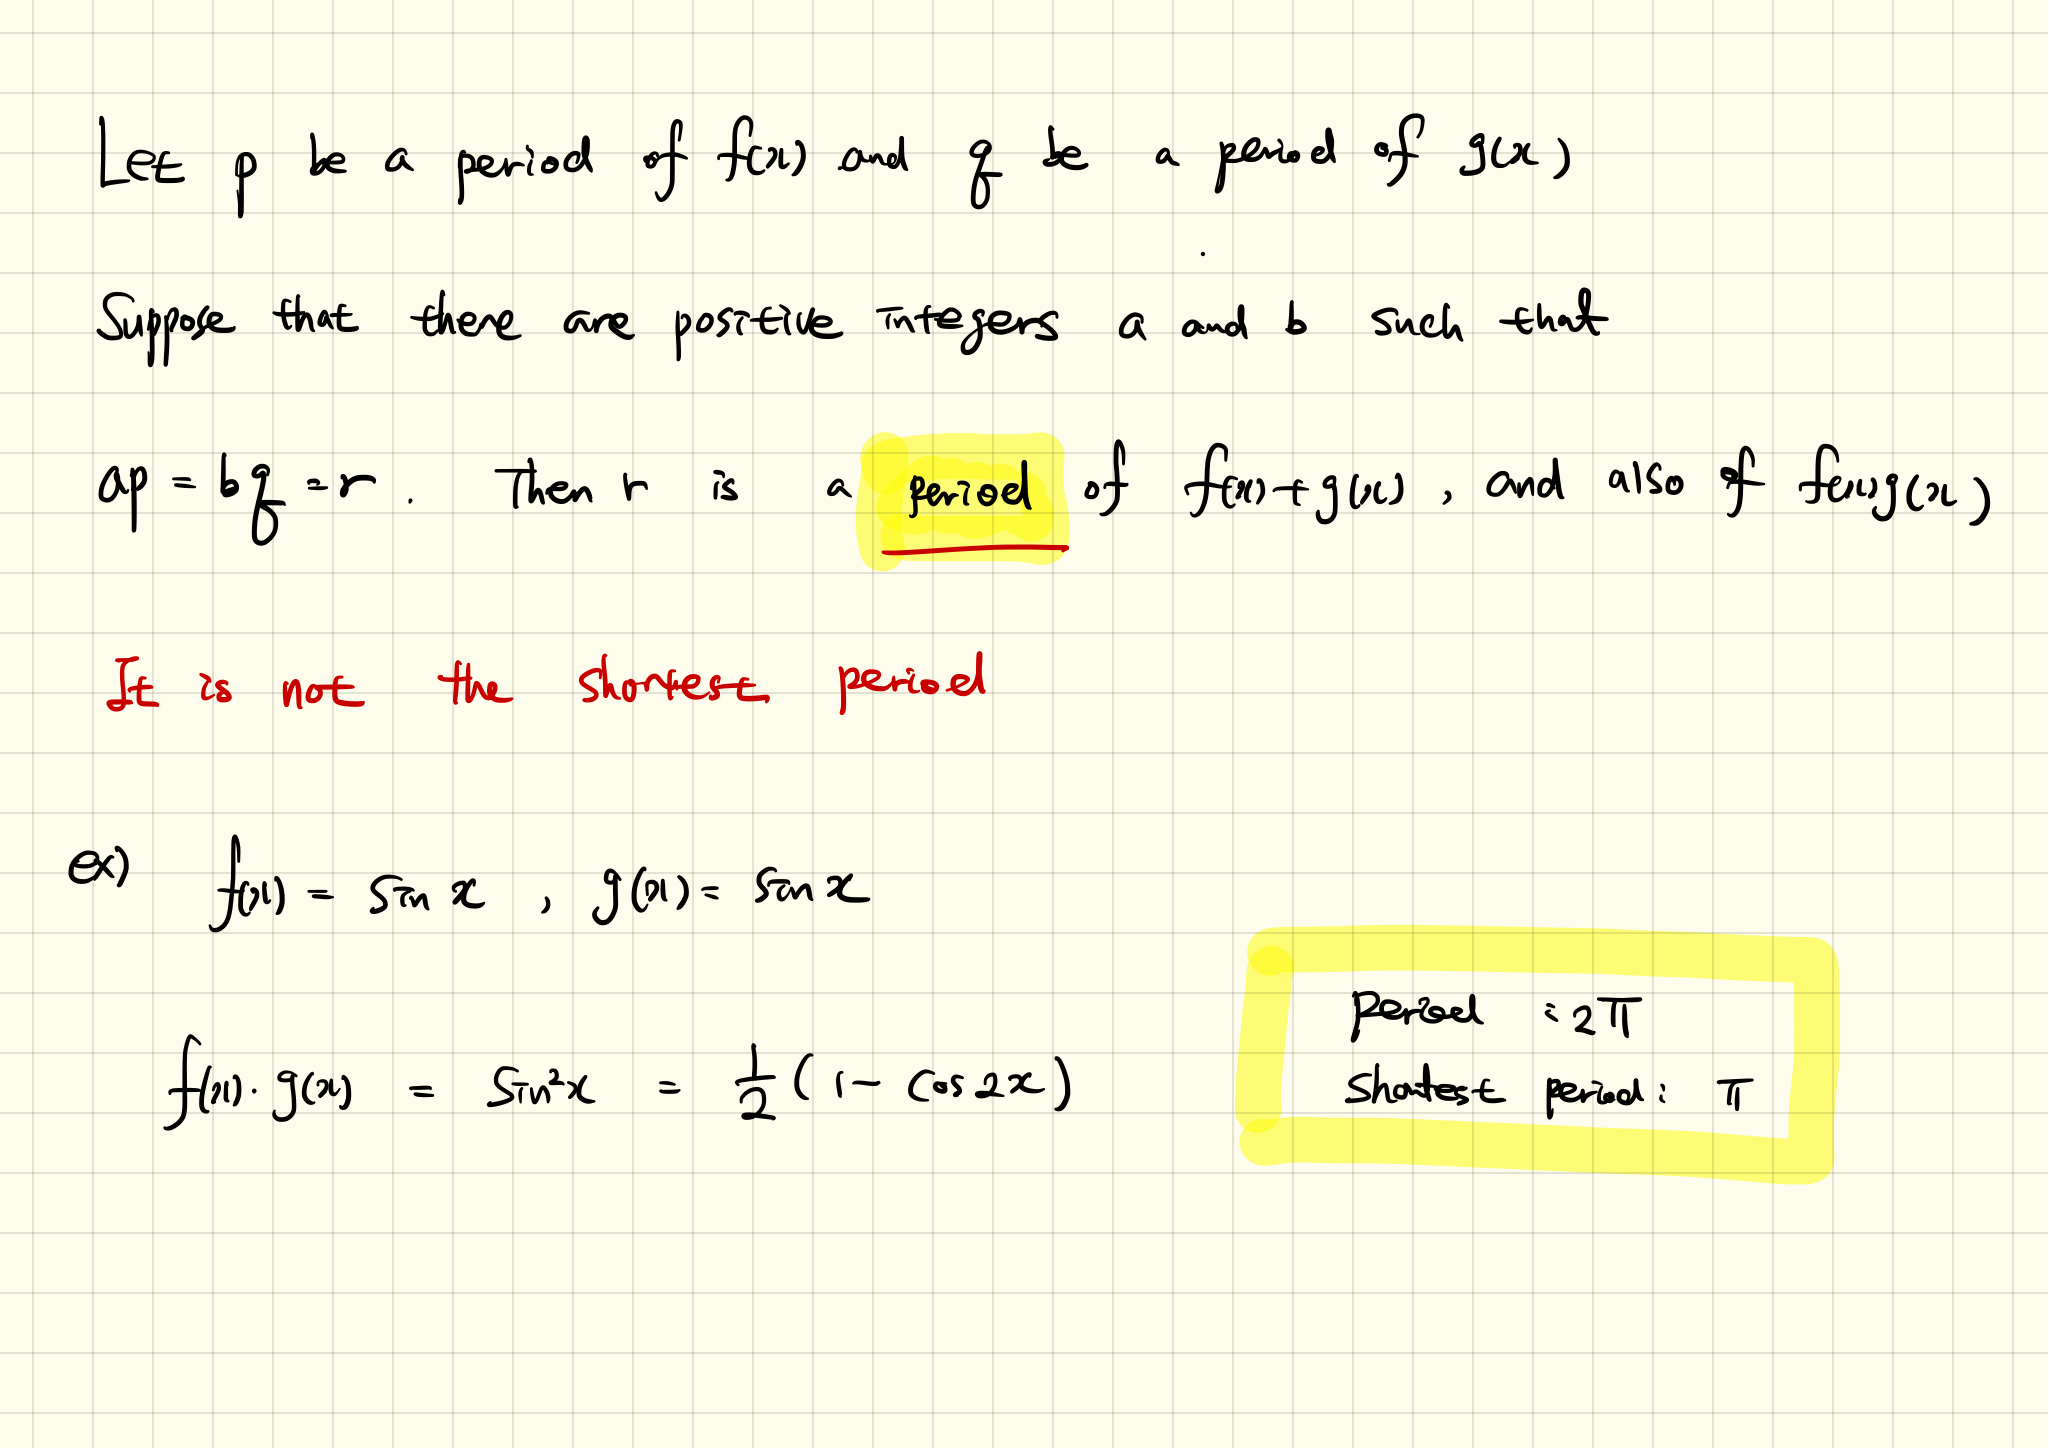 Let p be a period of f(x) and q be a period of g(x)
Suppose that there are positive integers a and b such that
ap = bq = r. Then r is a period of f(x)+g(x), and also of f(x)g(x)
It is not the shortest period
ex) f(x) = sin x, g(x) = sin x
f(x)·g(x) = sin²x = 1/2 (1 - cos 2x)
period : 2π
shortest period: π